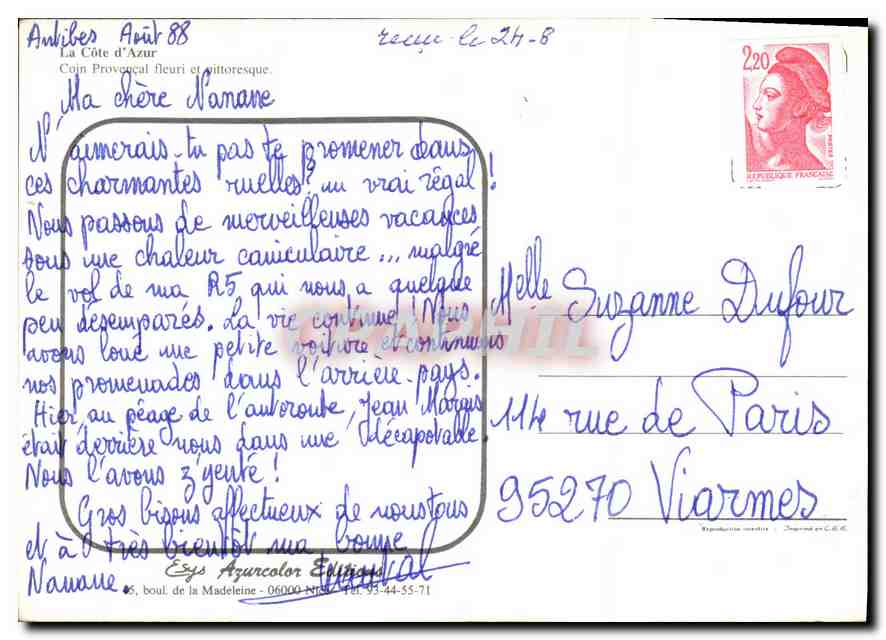 Antibes Août 88
reçu le 24-8
La Côte d'Azur
Coin Provençal fleuri et pittoresque.
2,20
POSTES
REPUBLIQUE FRANÇAISE
Ma chère Nanane
N'aimerais-tu pas te promener dans
ces charmantes ruelles? un vrai régal!
Nous passons de merveilleuses vacances
sous une chaleur caniculaire... malgré
le vol de ma R5 qui nous a quelque
peu désemparés. La vie continue! Nous
avons loué une petite voiture et continuons
nos promenades dans l'arrière-pays.
Hier au péage de l'autoroute, Jean Marais
était derrière nous dans une décapotable.
Nous l'avons z'yeuté!
Gros bisous affectueux de nous tous
et à très bientôt ma bonne
Nanane.
Melle Suzanne Dufour
114 rue de Paris
95270 Viarmes
Reproduction interdite - Imprimé en C.E.E.
Esys Azurcolor Editions
boul. de la Madeleine - 06000 Nice Tél. 93-44-55-71
CPAPHIL